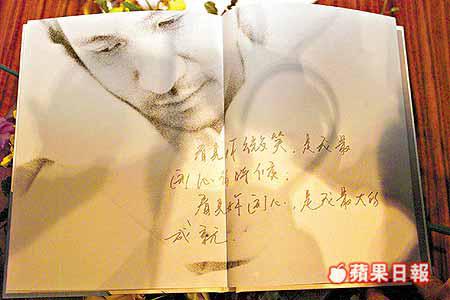 看見你微笑,是我最
開心的時候;
看見妳開心,是我最大的
成就.
蘋果日報